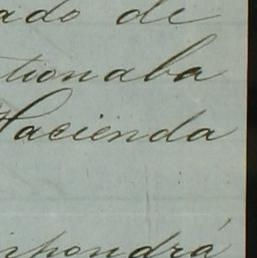 ado de
tionaba
Hacienda
spondrá